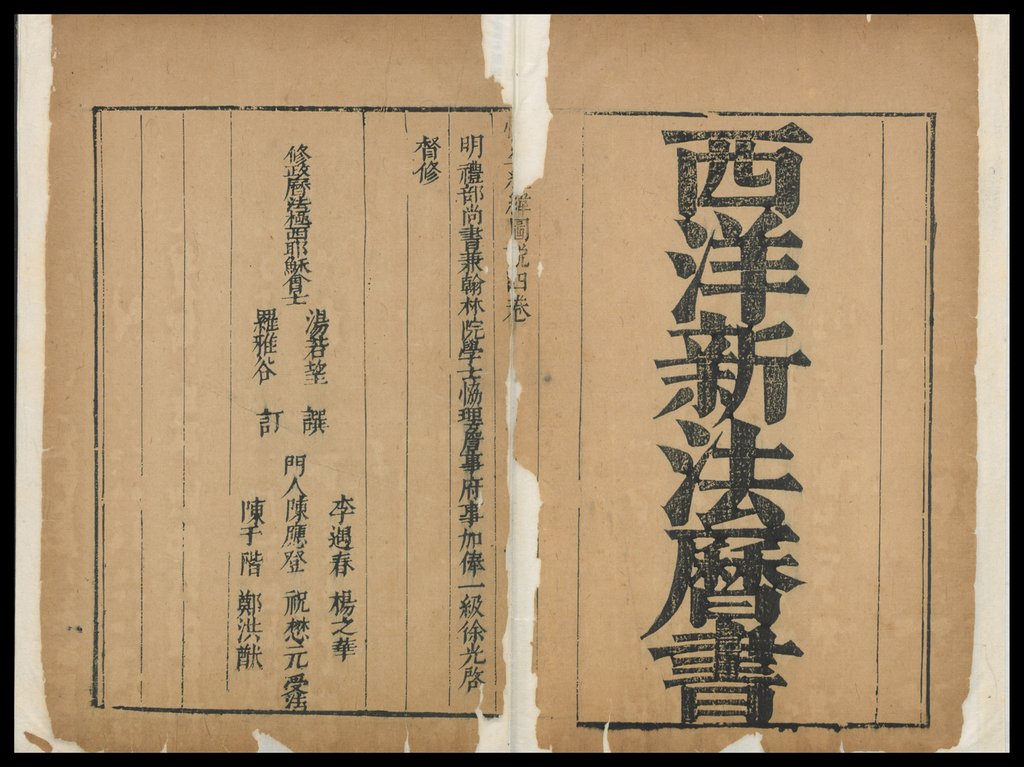 西洋新法曆書
緯圖說四卷
明禮部尚書兼翰林院學士恊理詹事府事加俸一級徐光啓
督修
修政曆法極西耶穌會士
湯若望 撰
羅雅谷 訂
李遇春 楊之華
門人陳應登 祝懋元 受法
陳于階 鄭洪猷